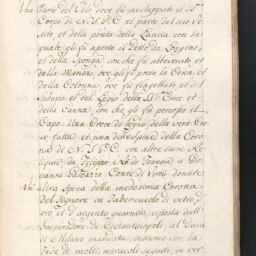 Una Parte del Velo dove fù inviluppato il SS.mo
Corpo di N. S. G. C. et parte del suo Ve-
stito, et della ponta della Lancia con la
quale gli fù aperto il Petto da Longino,
et della Sponga con che fù abbeverato et
della Mensa, ove gli fù posta la Cena et
della Colonna, ove fù flagellato et del
Sudario, et del Legno della SS.ma Croce et
della Canna con che gli fù percosso il
Capo. Una Croce di Legno della vera Cro-
ce fatta, et una delle Spine della Coro-
na di N. S. G. C. con altre sacre Re-
liquie da Filippo Re di Francia à Gio-
vanni Galeazzo Conte di Virtù donate
Un'altra Spina della medesima Corona
del Signore in Tabernacolo di vetro, d'
oro, et d'argento guarnito, esposta dall'
Imperadore di Costantinopoli al Duca
di Milano mandata, insieme con la
Fede di molti miracoli seguiti, in vir-